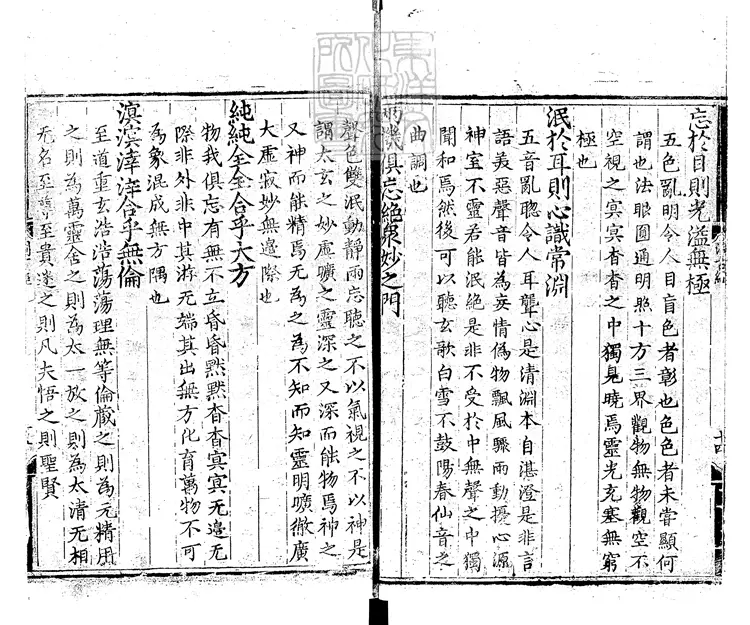 忘於目則光溢無極
五色亂明令人目盲色者彰也色色者未嘗顯何
謂也法眼圓通明照十方三界觀物無物觀空不
空視之寞寞杳杳之中獨見曉焉靈光充塞無窮
極也
泯於耳則心識常淵
五音亂聰令人耳聾心是清淵本自湛澄是非言
語美惡聲音皆為妄情偽物飄風驟雨動擾心源
神室不靈若能泯絕是非不受於中無聲之中獨
聞和焉然後可以聽玄歌白雪不鼓陽春仙音之
曲調也
兩機俱忘絕眾妙之門
聲色雙泯動靜兩忘聽之不以氣視之不以神是
謂太玄之妙虛曠之靈深之又深而能物焉神之
又神而能精焉无為之為不知而知靈明曠微廣
大虛寂妙無邊際也
純純全全合乎大方
物我俱忘有無不立昏昏默默杳杳寞寞无邊无
際非外非中其游无端其出無方化育萬物不可
為象混成無方隅也
溟溟涬涬合乎無倫
至道重玄浩浩蕩蕩理無等倫藏之則為元精用
之則為萬靈舍之則為太一放之則為太清无相
无名至尊至貴迷之則凡夫悟之則聖賢